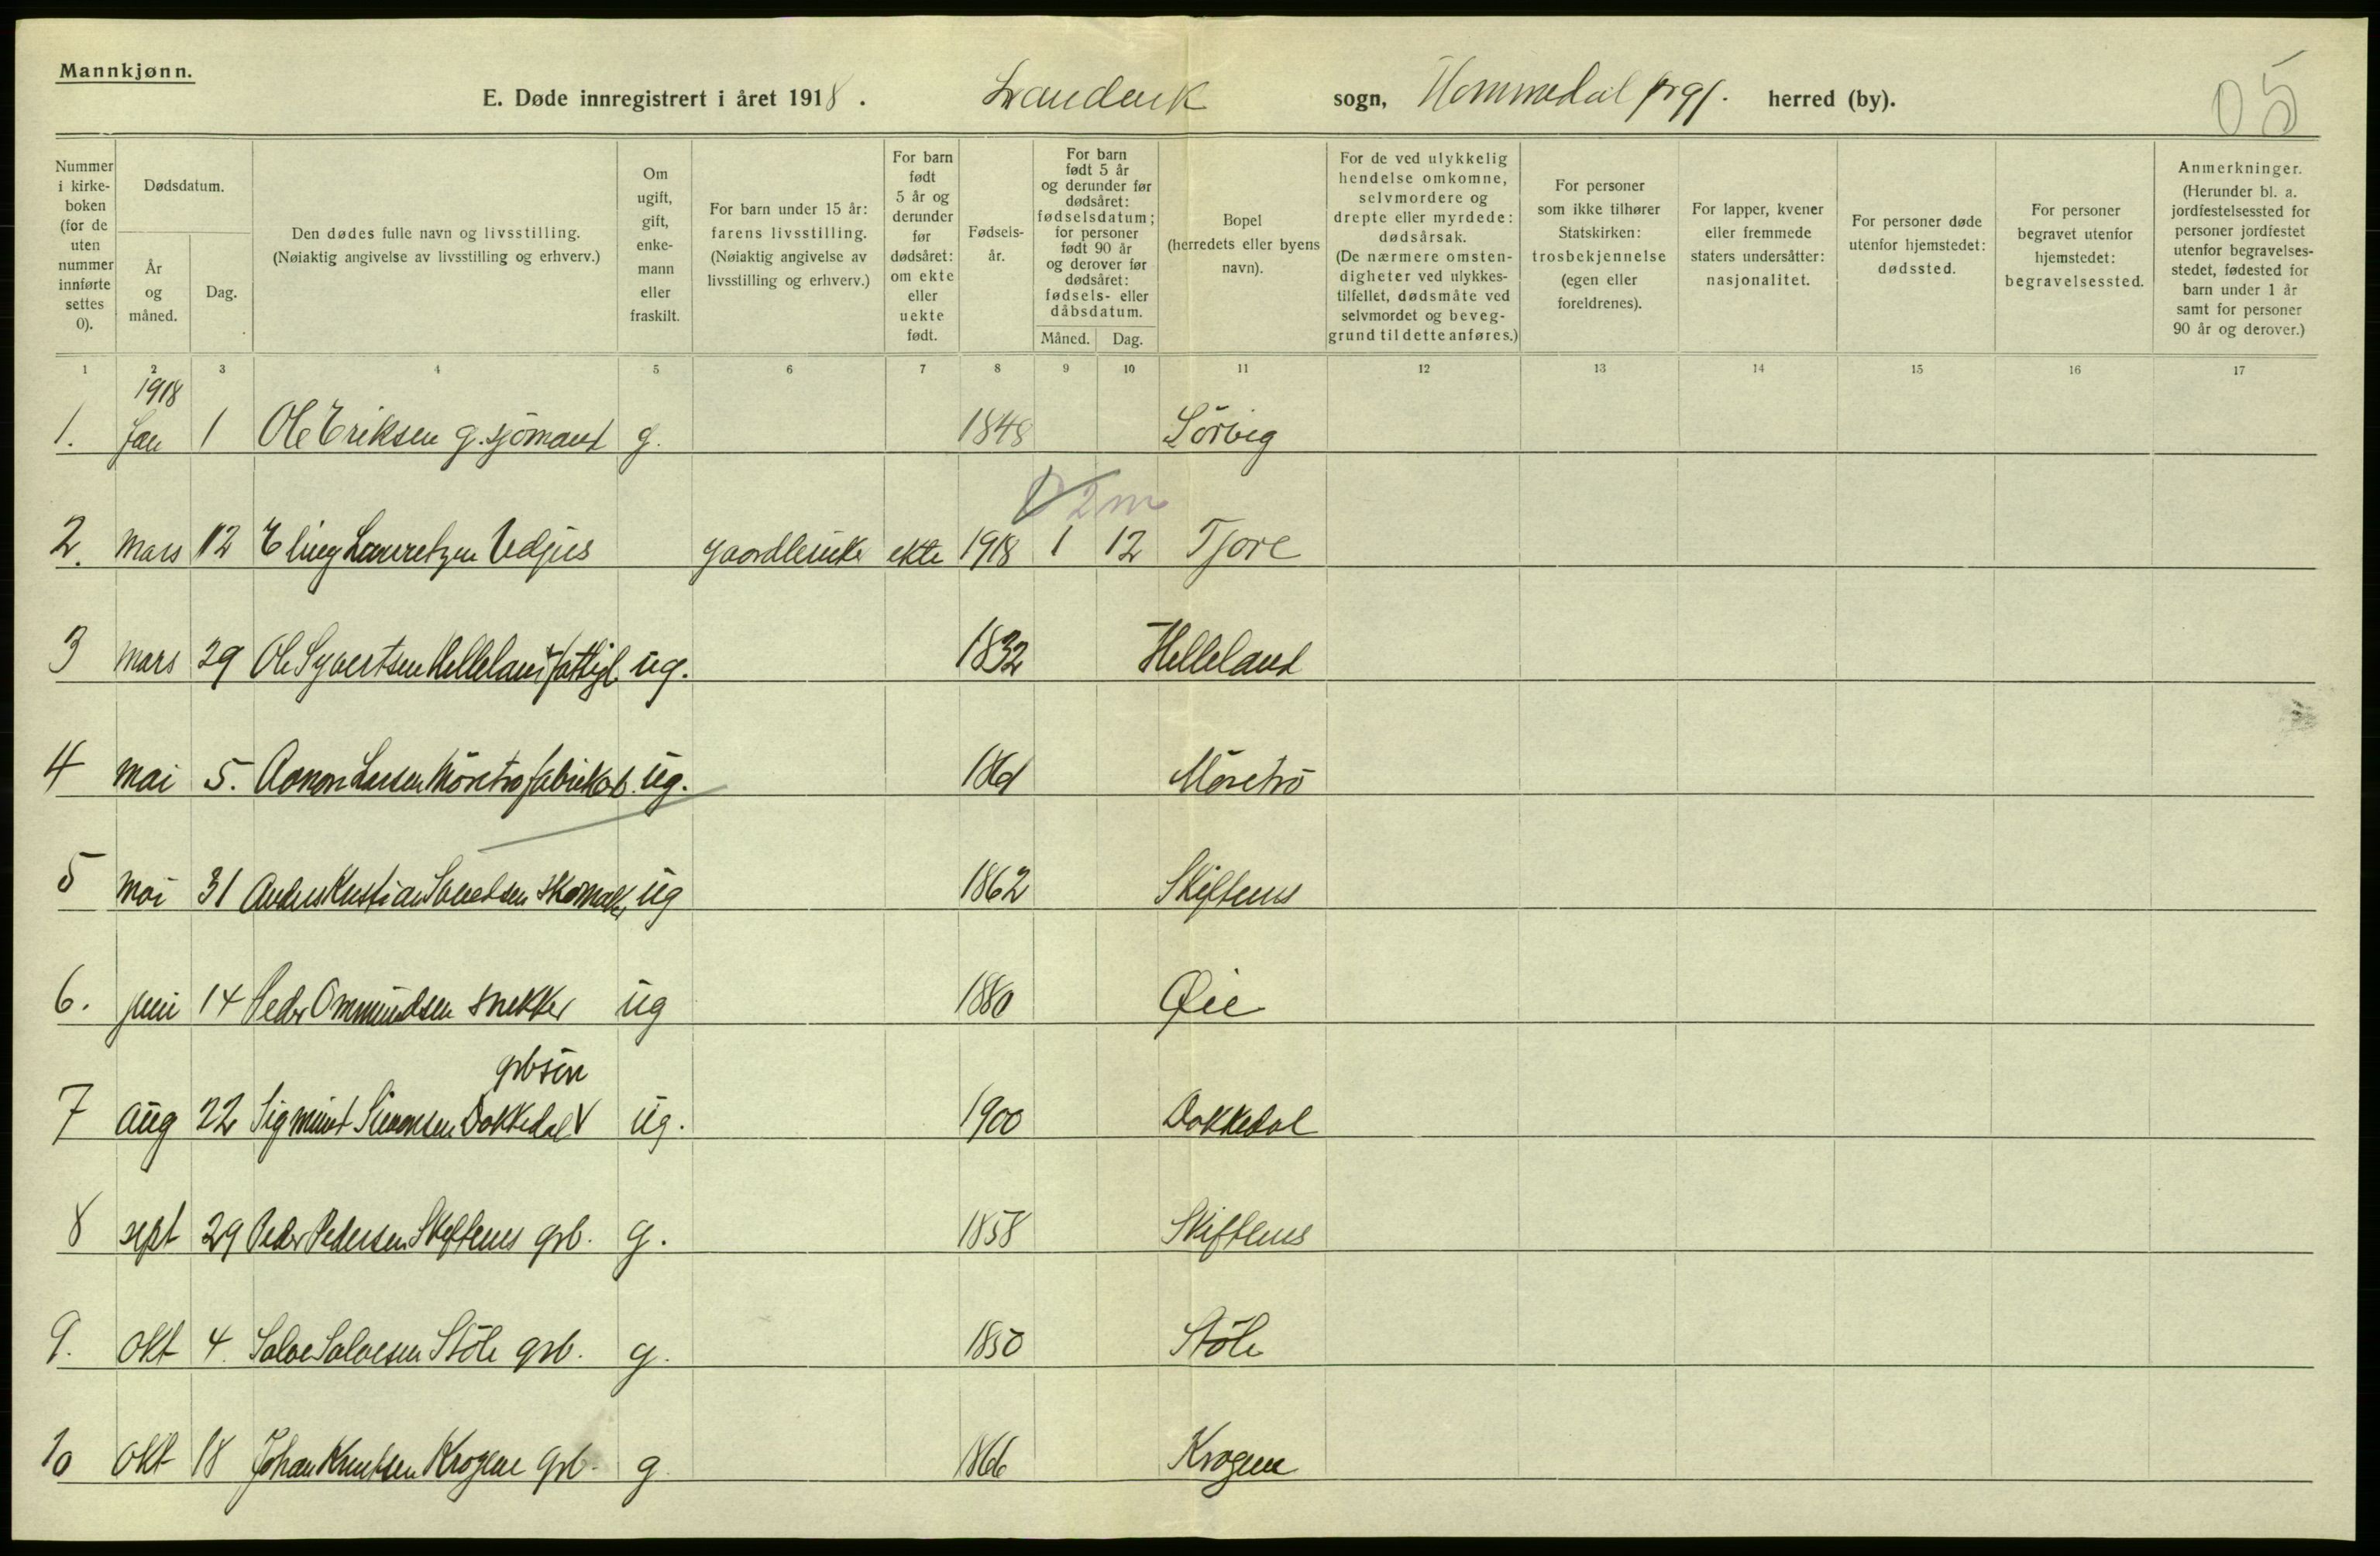 Mannkjønn.
E. Døde innregistrert i året 1918. Landvik sogn, Hommedal prgj. herred (by).
05
Nummer i kirke-boken (for de uten nummer innførte settes 0).
Dødsdatum.
År og måned.
Dag.
Den dødes fulle navn og livsstilling.
(Nøiaktig angivelse av livsstilling og erhverv.)
Om ugift, gift, enke-mann eller fraskilt.
For barn under 15 år: farens livsstilling.
(Nøiaktig angivelse av livsstilling og erhverv.)
For barn født 5 år og derunder før dødsåret: om ekte eller uekte født.
Fødsels-år.
For barn født 5 år og derunder før dødsåret: fødselsdatum; for personer født 90 år og derover før dødsåret: fødsels- eller dåbsdatum.
Måned. Dag.
Bopel (herredets eller byens navn).
For de ved ulykkelig hendelse omkomne, selvmordere og drepte eller myrdede: dødsårsak.
(De nærmere omsten-digheter ved ulykkes-tilfellet, dødsmåte ved selvmordet og beveg-grund til dette anføres.)
For personer som ikke tilhører Statskirken: trosbekjennelse (egen eller foreldrenes).
For lapper, kvener eller fremmede staters undersåtter: nasjonalitet.
For personer døde utenfor hjemstedet: dødssted.
For personer begravet utenfor hjemstedet: begravelsessted.
Anmerkninger.
(Herunder bl. a. jordfestelsessted for personer jordfestet utenfor begravelses-stedet, fødested for barn under 1 år samt for personer 90 år og derover.)
1 2 3 4 5 6 7 8 9 10 11 12 13 14 15 16 17
1918
1. Jan 1 Ole Eriksen g. sjömand g. 1848 Sörvig
2 m
2. Mars 12 Lauretzen ekte 1918 1 12 Tjore
3 Mars 29 Ole Syvertsen Helleland fattigl. ug. 1832 Helleland
4 Mai 5. Aanon Larsen Möretrö fabrikarb. ug. 1861 Möretrö
5 Mai 31 Anders Kristian skomak. ug 1862 Skiftenes
6. juni 14 Peder Ommundsen snekker ug 1880 Øie
grbsön
7 Aug 22 Sigmund Simonsen Dokkedal ug. 1900 Dokkedal
8 sept 29 Peder Pedersen Skiftenes grb. g. 1858 Skiftenes
9. Okt 4. Salve Salvesen Stöle grb. g. 1850 Stöle
10 Okt 18 Johan Knutsen Krogene grb. g 1866 Krogene